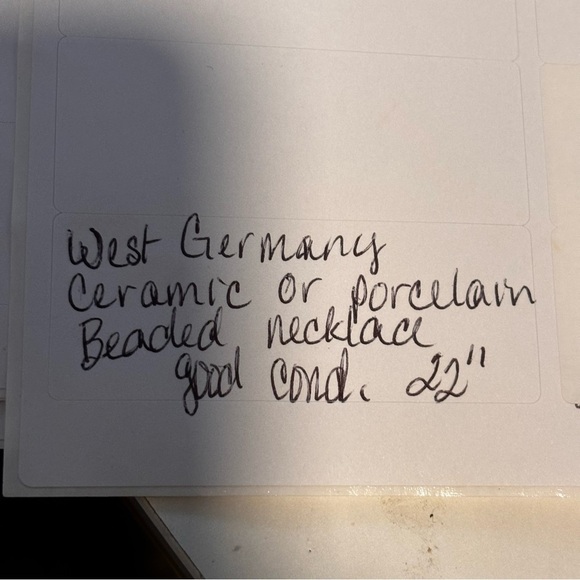 West Germany
Ceramic or porcelain
Beaded necklace
good cond. 22"